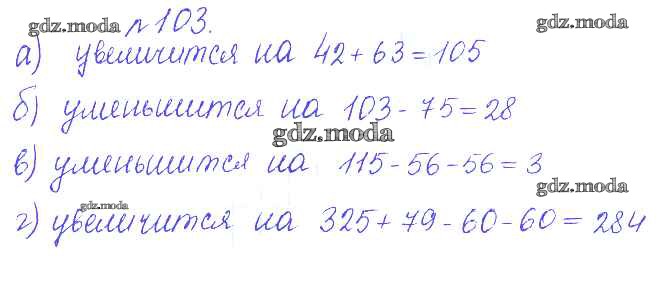 gdz.moda
№ 103.
gdz.moda
а) увеличится на 42 + 63 = 105
б) уменьшится на 103 - 75 = 28
gdz.moda
в) уменьшится на 115 - 56 - 56 = 3
gdz.moda
gdz.moda
г) увеличится на 325 + 79 - 60 - 60 = 284